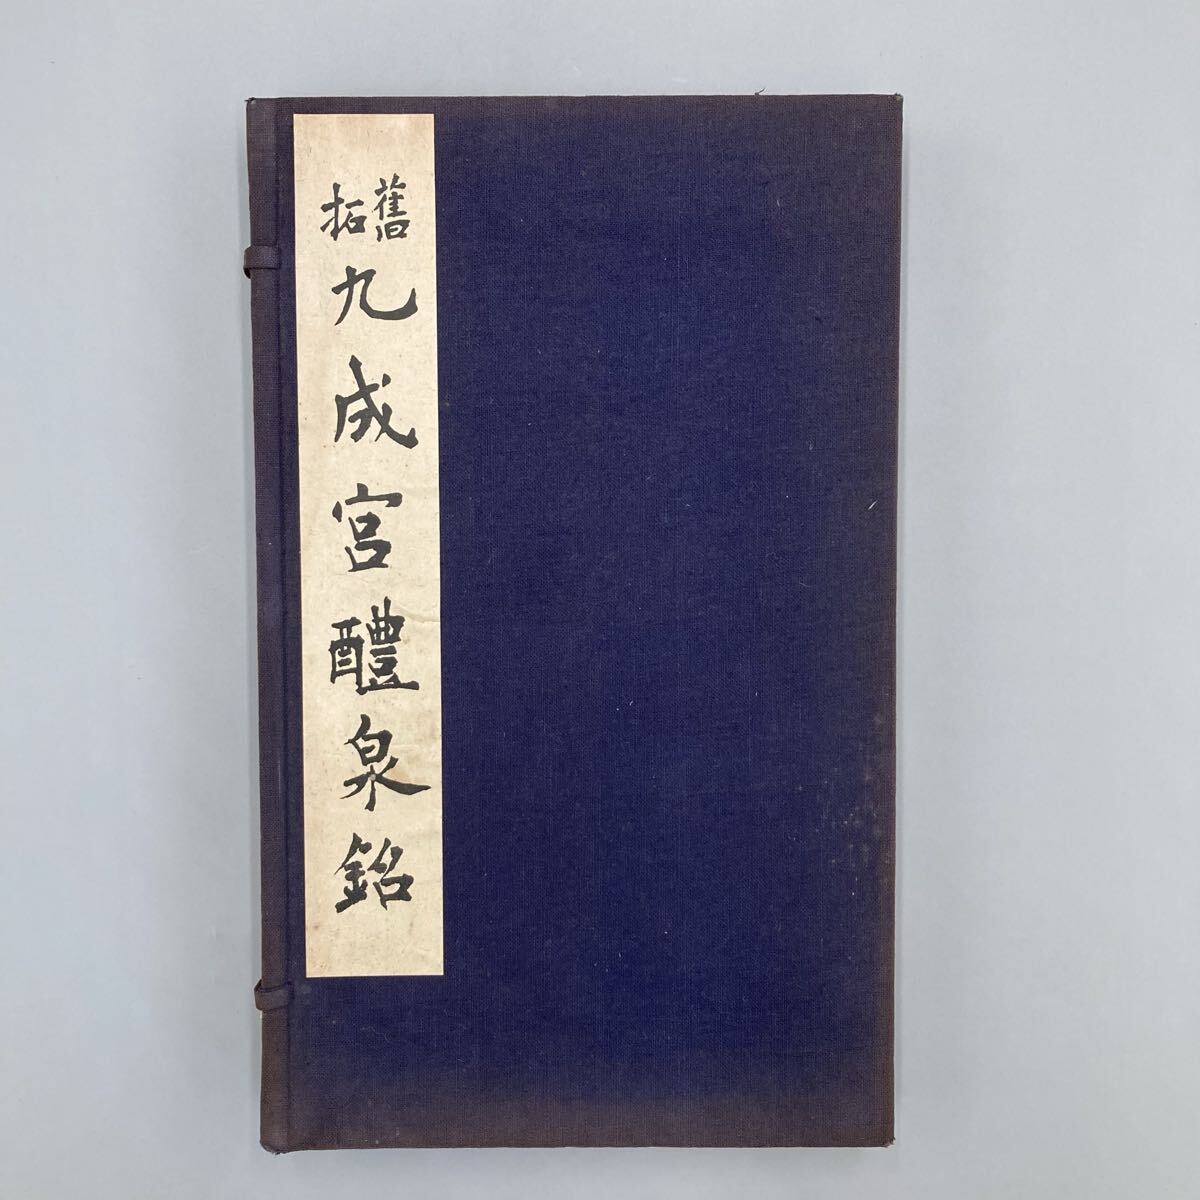 舊拓
九成宮醴泉銘